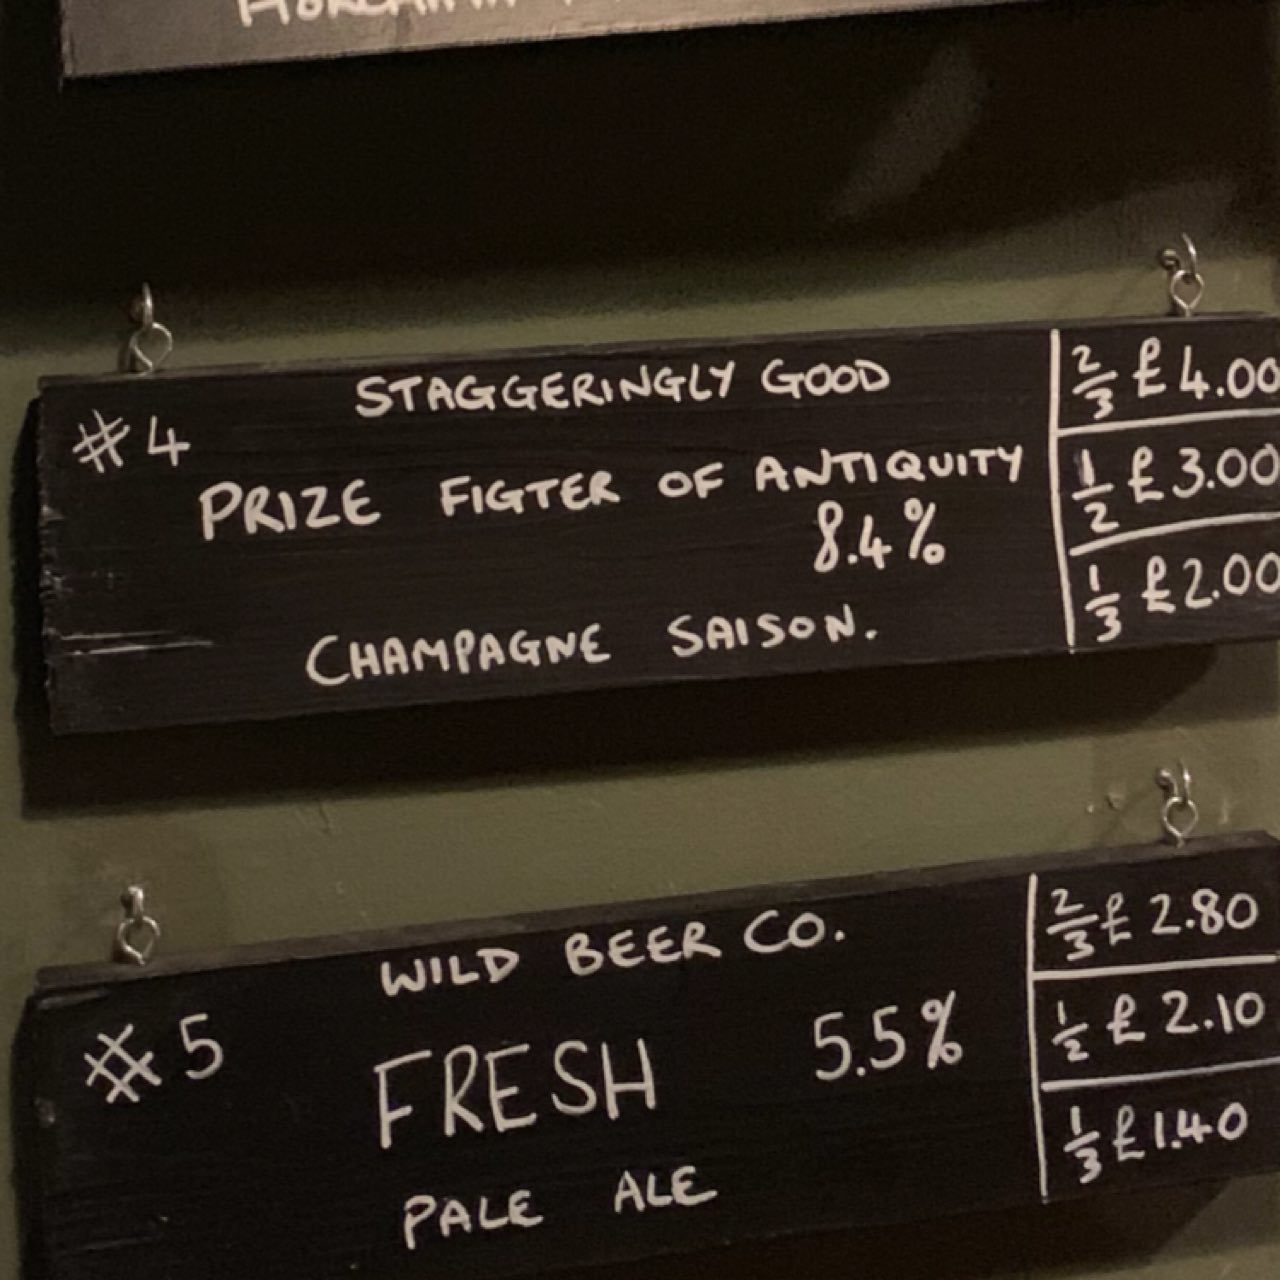 #4
STAGGERINGLY GOOD
PRIZE FIGTER OF ANTIQUITY
8.4%
CHAMPAGNE SAISON.
2/3 £4.00
1/2 £3.00
1/3 £2.00
#5
WILD BEER CO.
FRESH 5.5%
PALE ALE
2/3 £2.80
1/2 £2.10
1/3 £1.40